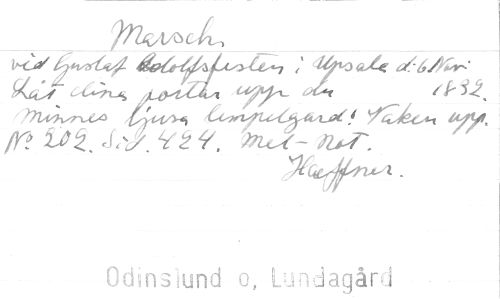 Marsch
vid Gustaf Adolfsfesten i Upsala d. 6 Nov.
Låt dina portar upp du 1832.
minnes ljusa tempelgård! Vaken upp.
No 202. Sid. 424. Mel-Not.
Haeffner.
Odinslund o, Lundagård